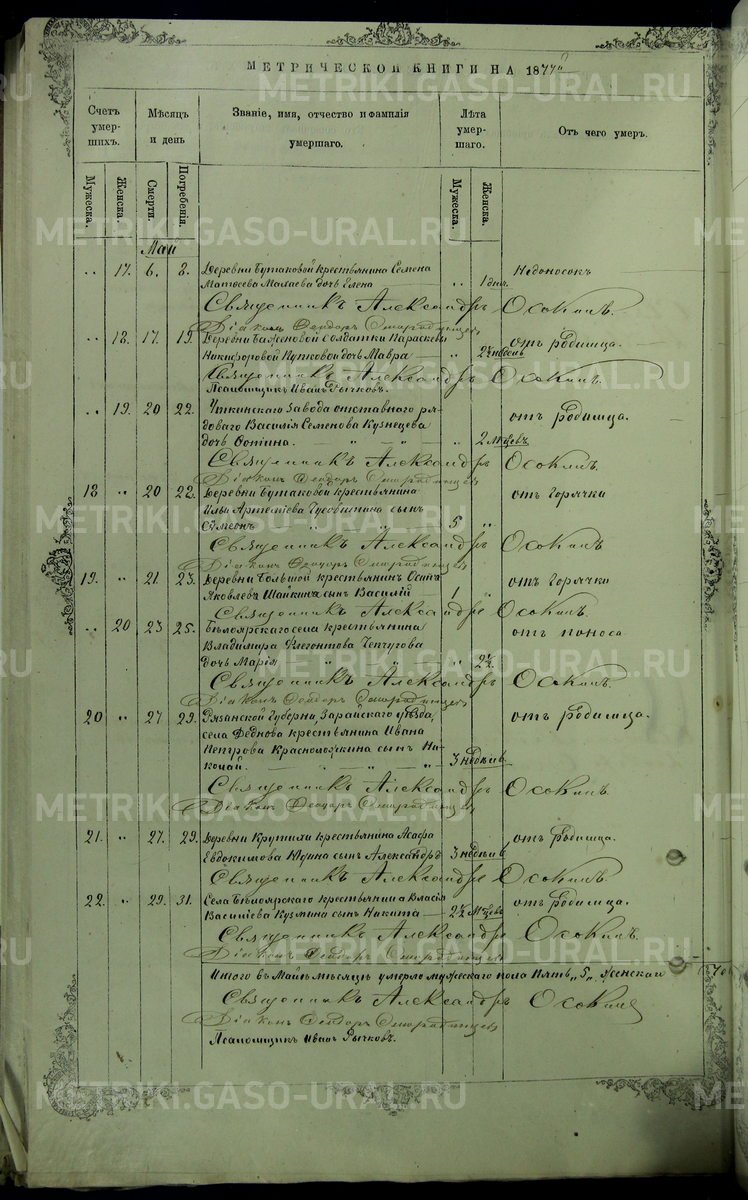 МЕТРИЧЕСКОЙ КНИГИ НА 1877й
Счетъ умерших.
Мѣсяцъ и день
Званіе, имя, отчество и фамилія умершаго.
Лѣта умершаго.
Отъ чего умеръ.
Мужеска.
Женска.
Смерти.
Погребенія.
Мужеска.
Женска.
Май
„ 17. 6. 8. Деревни Бутаковой крестьянина Семена Недоносокъ
Матвеева Малаева дочь Елена „ 1 дня.
Священникъ Александръ Осокинъ.
Діаконъ Феодоръ
„ 18. 17. 19. Деревни Баженовой солдатки Параскевы отъ родимца.
Никифоровой дочь Мавра
Священникъ Александръ Осокинъ.
Псаломщикъ Иванъ Рычковъ.
„ 19. 20 22. Уткинскаго завода отставнаго ря- отъ родимца.
доваго Василія Семенова Кузнецева
дочь Фотина. „ 2 мѣсяцевъ
Священникъ Александръ Осокинъ.
Діаконъ Феодоръ
18 „ 20 22. Деревни Бутаковой крестьянина отъ горячки
Ильи Артеміева сынъ
Симеонъ 5 „
Священникъ Александръ Осокинъ
Діаконъ Феодоръ
19. „ 21. 23. Деревни Большой крестьянин Осипа отъ горячки
Яковлева Шайкина сынъ Василій 1
Священникъ Александръ Осокинъ.
„ 20 23 25. Бѣлоярскаго села крестьянина отъ поноса
Владимира Флегонтова Чепчугова
дочь Марія „ 2½
Священникъ Александръ Осокинъ.
Діаконъ Феодоръ
20 „ 27 29. Рязанской Губерни, Зарайскаго уѣзда, отъ родимца.
села Деднова крестьянина Ивана
Петрова сынъ Ни-
колай. 3 недѣль
Священникъ Александръ Осокинъ.
Діаконъ Феодоръ
21. „ 27. 29. Деревни Крутихи крестьянина Асафа отъ родимца.
Евдокимова Юдина сынъ Александръ 3 недѣль
Священникъ Александръ Осокинъ
22. „ 29. 31. Села Бѣлоярскаго крестьянина Власія отъ родимца.
Василіева Кузмина сынъ Никита 2½ мѣсяцевъ
Священникъ Александръ Осокинъ.
Діаконъ Феодоръ
Итого въ Майѣ мѣсяцѣ умерло мужескаго пола пять „5„ женскаго
Священникъ Александръ Осокинъ
Діаконъ Феодоръ
Псаломщикъ Иванъ Рычковъ.
METRIKI.GASO-URAL.RU